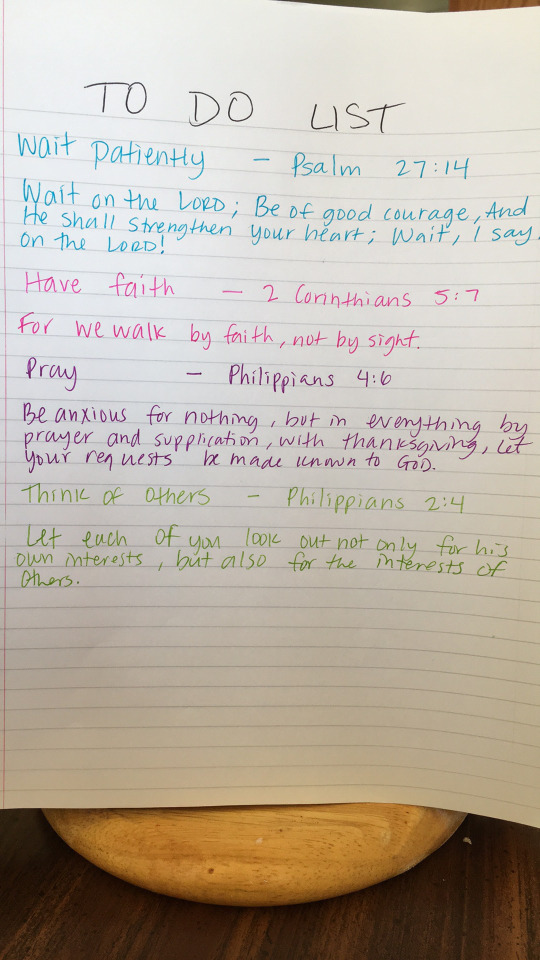 TO DO LIST
Wait patiently - Psalm 27:14
Wait on the LORD; Be of good courage, And
He shall strengthen your heart; Wait, I say,
on the LORD!
Have faith - 2 Corinthians 5:7
For we walk by faith, not by sight.
Pray - Philippians 4:6
Be anxious for nothing, but in everything by
prayer and supplication, with thanksgiving, let
your requests be made known to GOD.
Think of others - Philippians 2:4
Let each of you look out not only for his
own interests, but also for the interests of
others.